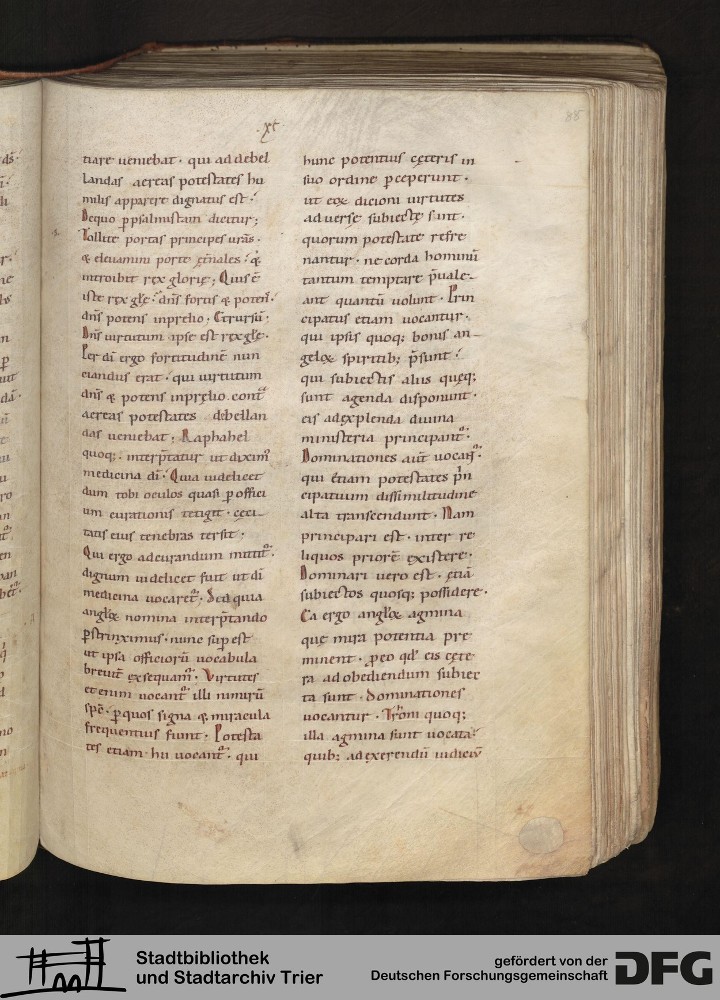 .xi.
88
tiare ueniebat · qui ad debel
landas aereas potestates hu
milis apparere dignatus est ·
De quo p psalmistam dicitur ;
Tollite portas principes uras ·
& eleuamini porte ęt̄nales · & 
introibit rex glorię ; Quis ē
iste rex glę · dn̄s fortis & potens ·
dn̄s potens in prelio · Et rursū ·
Dn̄s uirtutum ipse est rex glę ·
Per dī ergo fortitudinē nun
ciandus erat · qui uirtutum
dn̄s & potens in prelio cont
aereas potestates debellan
das ueniebat ; Raphahel
quoq; · interp̄tatur ut dixim
medicina dī · Quia uidelicet
dum tobi oculos quasi p offici
um curationis tetigit · ceci
tatis eius tenebras tersit ·
Qui ergo ad curandum mittit ·
dignum uidelicet fuit ut dī
medicina uocaret · Sed quia
anglꝝ nomina interp̄tando
pstrinximus · nunc sup est
ut ipsa officiorū uocabula
breuit exsequam · Virtutes
etenim uocant illi nimirū
spē · p quos signa & miracula
frequentius fiunt · Potesta
tes etiam hii uocant · qui
hunc potentius cęteris in
suo ordine pceperunt ·
ut eoꝝ dicioni uirtutes
aduerse subiectę sunt ·
quorum potestate refre
nantur · ne corda hominū
tantum temptare p̄uale
ant quantū uolunt · Prin
cipatus etiam uocantur ·
qui ipsis quoq; bonis an
gelꝝ spiritib; p̄sunt ·
qui subiectis aliis quęq;
sunt agenda disponunt ·
eis ad explenda diuina
ministeria principant ·
Dominationes aut̄ uocant ·
qui etiam potestates p̄n
cipatuum dissimilitudine
alta transcendunt · Nam
principari est · inter re
liquos priorē existere ·
Dominari uero est · etiā
subiectos quosq; possidere ·
Ea ergo anglꝝ agmina
quę mira potentia pre
minent · p eo qd' eis cęte
ra ad obediendum subiec
ta sunt · dominationes
uocantur · Troni quoq;
illa agmina sunt uocata ·
quib; ad exerendū iudiciū
Stadtbibliothek
und Stadtarchiv Trier
gefördert von der
Deutschen Forschungsgemeinschaft
DFG